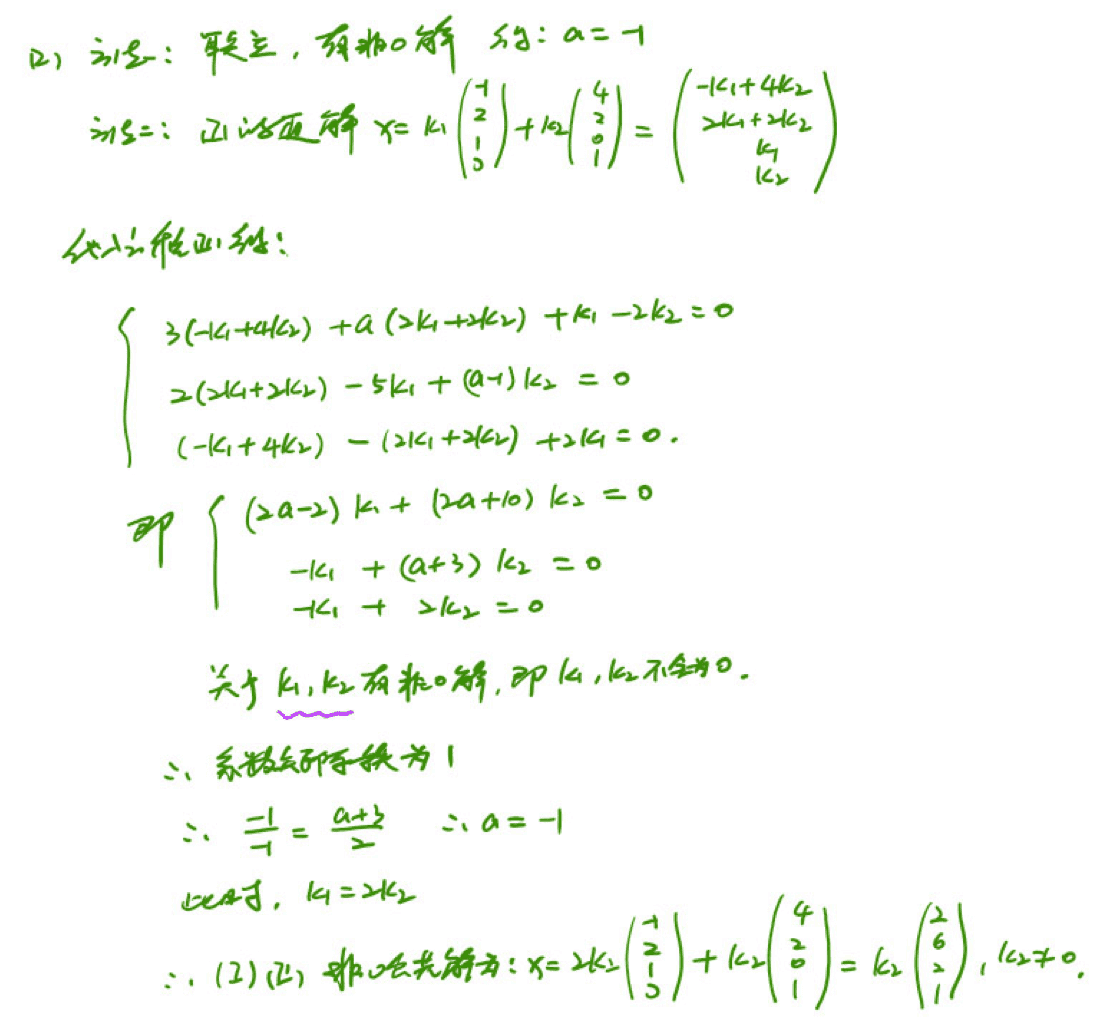 (2) 方法一: 联立, 有非0解 得: a = -1
方法二: (I)的通解 x = k₁(-1 2 1 0) + k₂(4 2 0 1) = (-k₁+4k₂ 2k₁+2k₂ k₁ k₂)
代入方程(II)得:
3(-k₁+4k₂) + a(2k₁+2k₂) + k₁ - 2k₂ = 0
2(2k₁+2k₂) - 5k₁ + (a-1)k₂ = 0
(-k₁+4k₂) - (2k₁+2k₂) + 2k₁ = 0.
即 (2a-2)k₁ + (2a+10)k₂ = 0
-k₁ + (a+3)k₂ = 0
-k₁ + 2k₂ = 0
关于 k₁, k₂ 有非0解, 即 k₁, k₂ 不全为0.
∴ 系数矩阵秩为1
∴ -1/-1 = a+3/2 ∴ a = -1
此时, k₁ = 2k₂
∴ (I)(II) 非0公共解为: x = 2k₂(-1 2 1 0) + k₂(4 2 0 1) = k₂(2 6 2 1), k₂≠0.